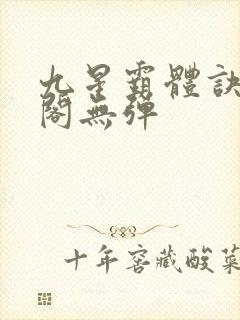 九星霸體訣
閣無彈
十年窖藏酸菜